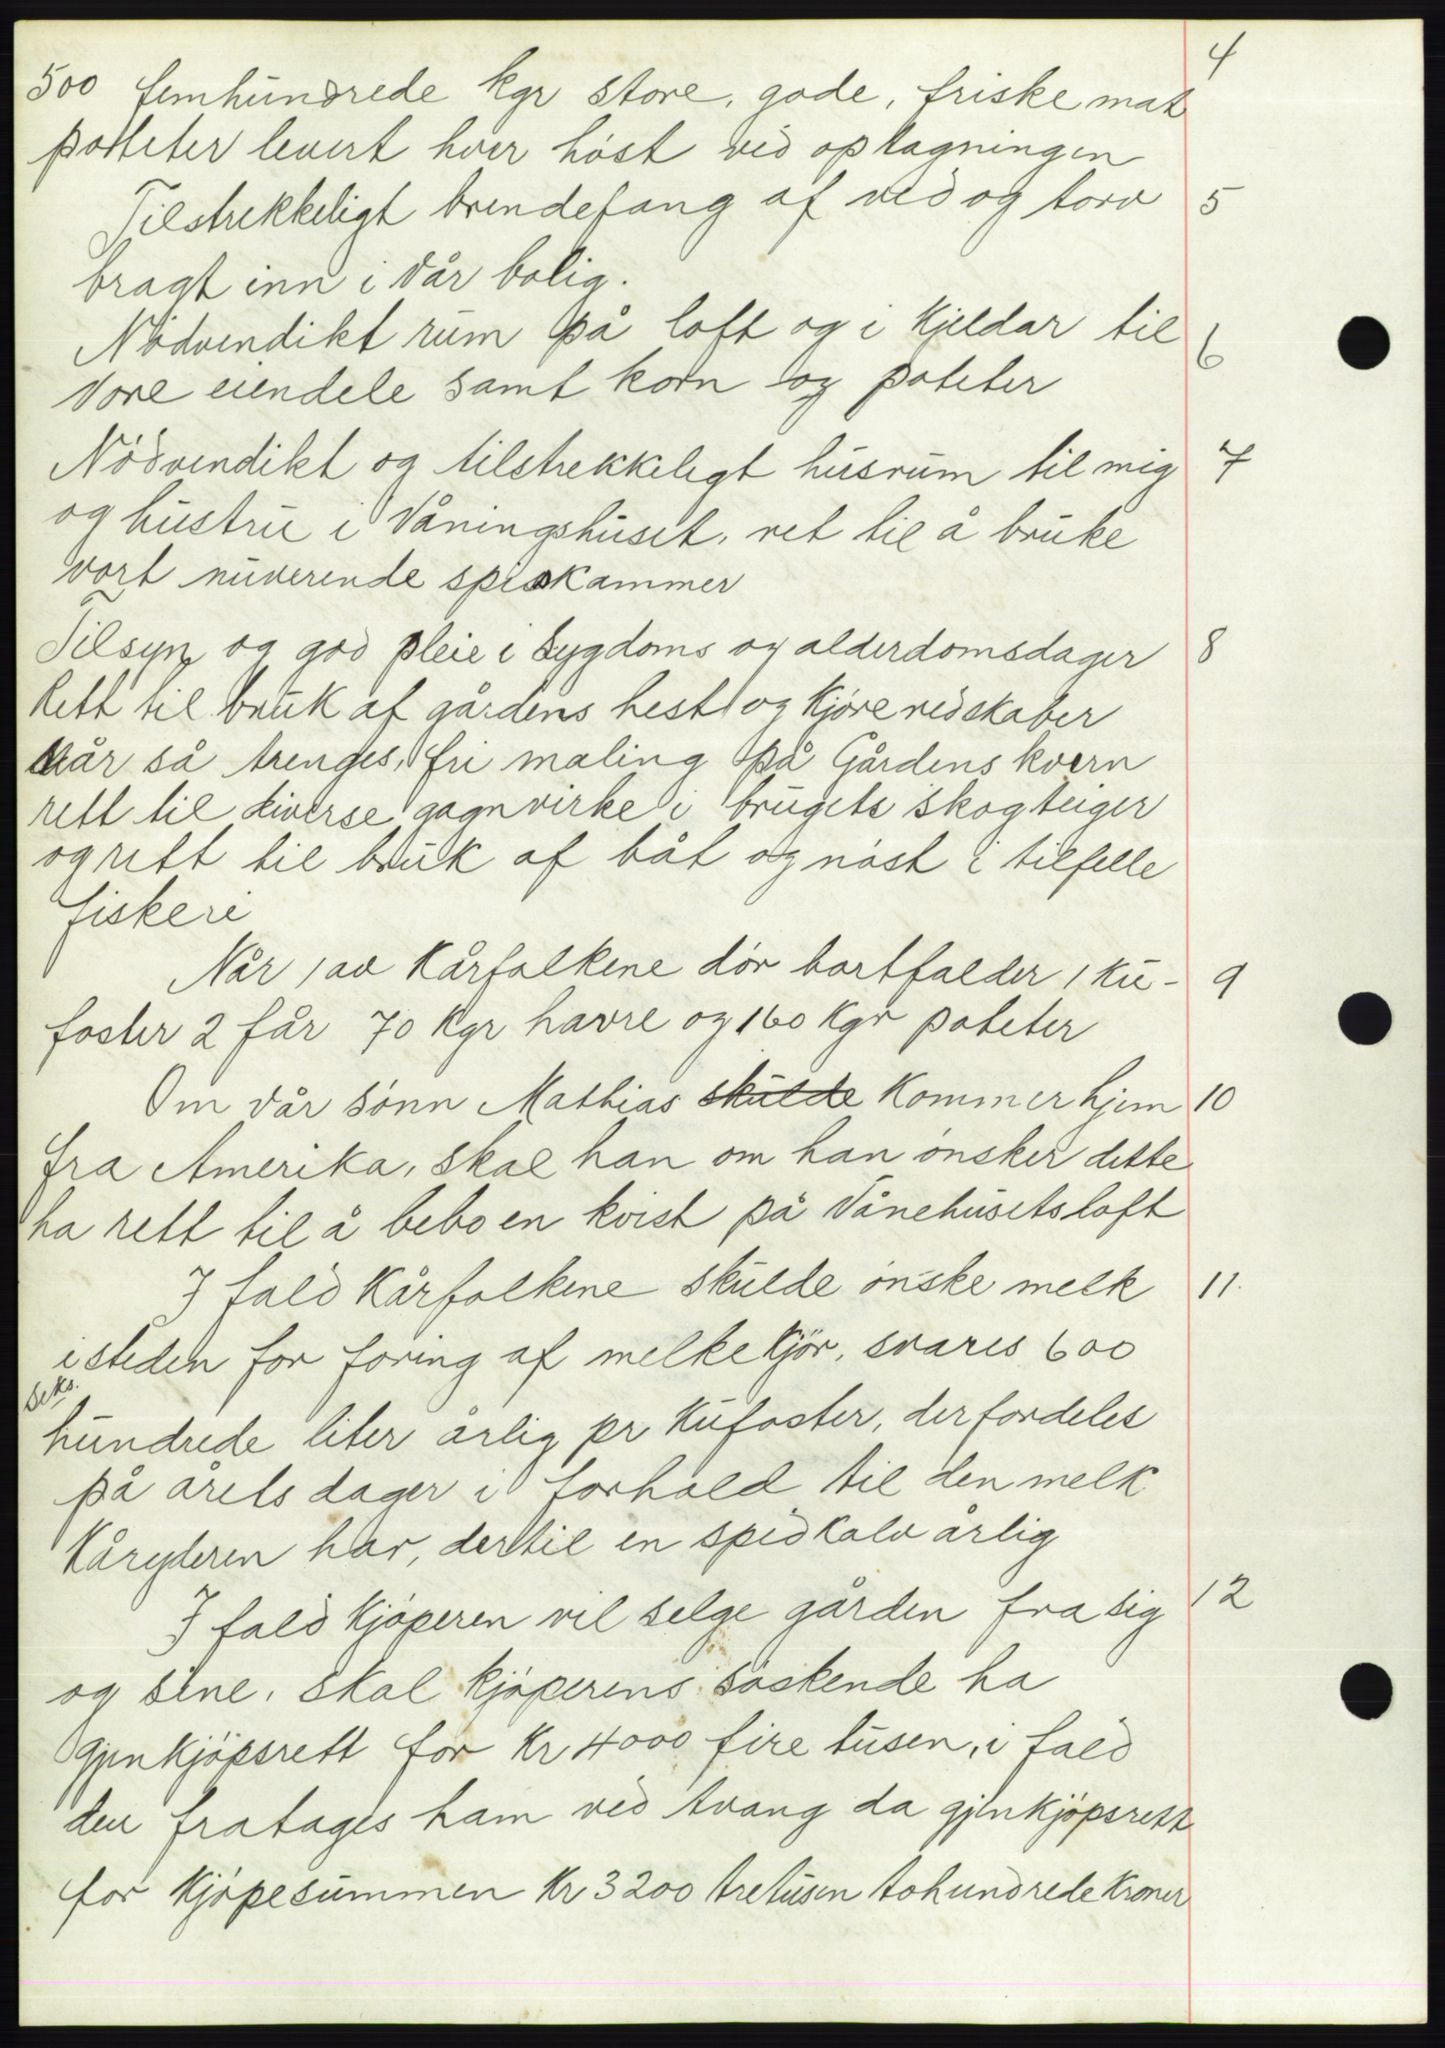 4
500 femhundrede kgr store, gode, friske mat
poteter levert hver höst ved optagningen
Tilstrekkeligt brendefang af ved og torv 5
bragt inn i vår bolig.
Nödvendikt rum på loft og i kjeldar til 6
vore eiendele samt korn og poteter
Nödvendikt og tilstrekkeligt husrum til mig 7
og hustru i Våningshuset, ret til å bruke
vort nuverende spiskammer
Tilsyn og god pleie i sygdoms og alderdomsdager 8
Rett til bruk af gårdens hest og kjöreredskaber
når så trenges, fri maling på Gårdens kvern
rett til diverse gagnvirke i brugets skogteiger
og rett til bruk af båt og nöst i tilfelle
fiskeri
Når 1 av Kårfolkene dör bortfalder 1 ku- 9
foster 2 får 70 kgr havre og 160 kgr poteter
Om vår sönn Mathias skulde kommer hjem 10
fra Amerika, skal han om han önsker dette
ha rett til å bebo en kvist på Vånehusets loft
I fald Kårfolkene skulde önske melk 11.
isteden for foring af melkekjör, svares 600
seks.
hundrede liter årlig pr kufoster, der fordeles
på årets dager i forhold til den melk
Kåryderen har, dertil en spedkalv årlig
I fald kjöperen vil selge gården fra sig 12
og sine, skal kjöperens söskende ha
gjenkjöpsrett for Kr 4000 fire tusen, i fald
den fratages ham ved tvang da gjenkjöpsrett
for kjöpesummen Kr 3200 tretusen tohundrede kroner